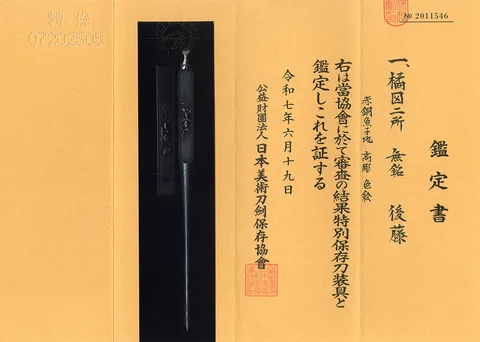 № 2011546
鑑定書
一、橘図二所 無銘 後藤
赤銅魚子地 高彫 色絵
右は當協會に於て審査の結果特別保存刀装具と
鑑定しこれを証する
令和七年六月十九日
公益財團法人 日本美術刀剣保存協會
特保